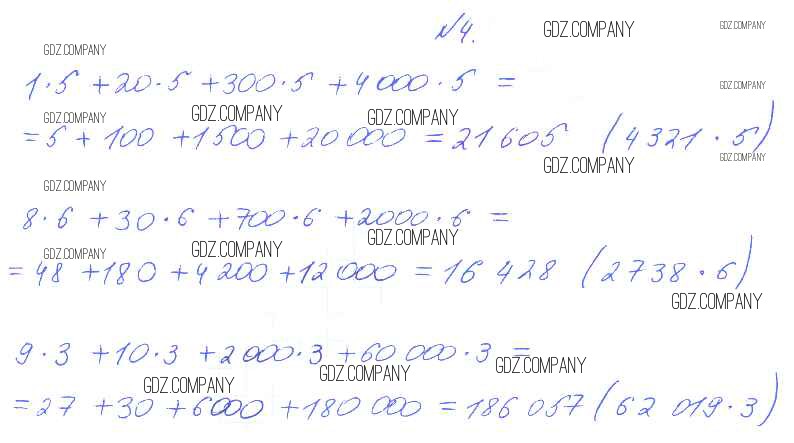 №4. GDZ.COMPANY GDZ.COMPANY
GDZ.COMPANY
1·5 +20·5 +300·5 +4 000·5 =
GDZ.COMPANY
GDZ.COMPANY GDZ.COMPANY GDZ.COMPANY
=5 +100 +1 500 +20 000 =21 605 (4 321·5)
GDZ.COMPANY GDZ.COMPANY
GDZ.COMPANY
8·6 +30·6 +700·6 +2000·6 =
GDZ.COMPANY GDZ.COMPANY GDZ.COMPANY
=48 +180 +4 200 +12 000 =16 428 (2 738·6)
GDZ.COMPANY
9·3 +10·3 +2 000·3 +60 000·3 =
GDZ.COMPANY GDZ.COMPANY GDZ.COMPANY
=27 +30 +6000 +180 000 =186 057 (62 019·3)